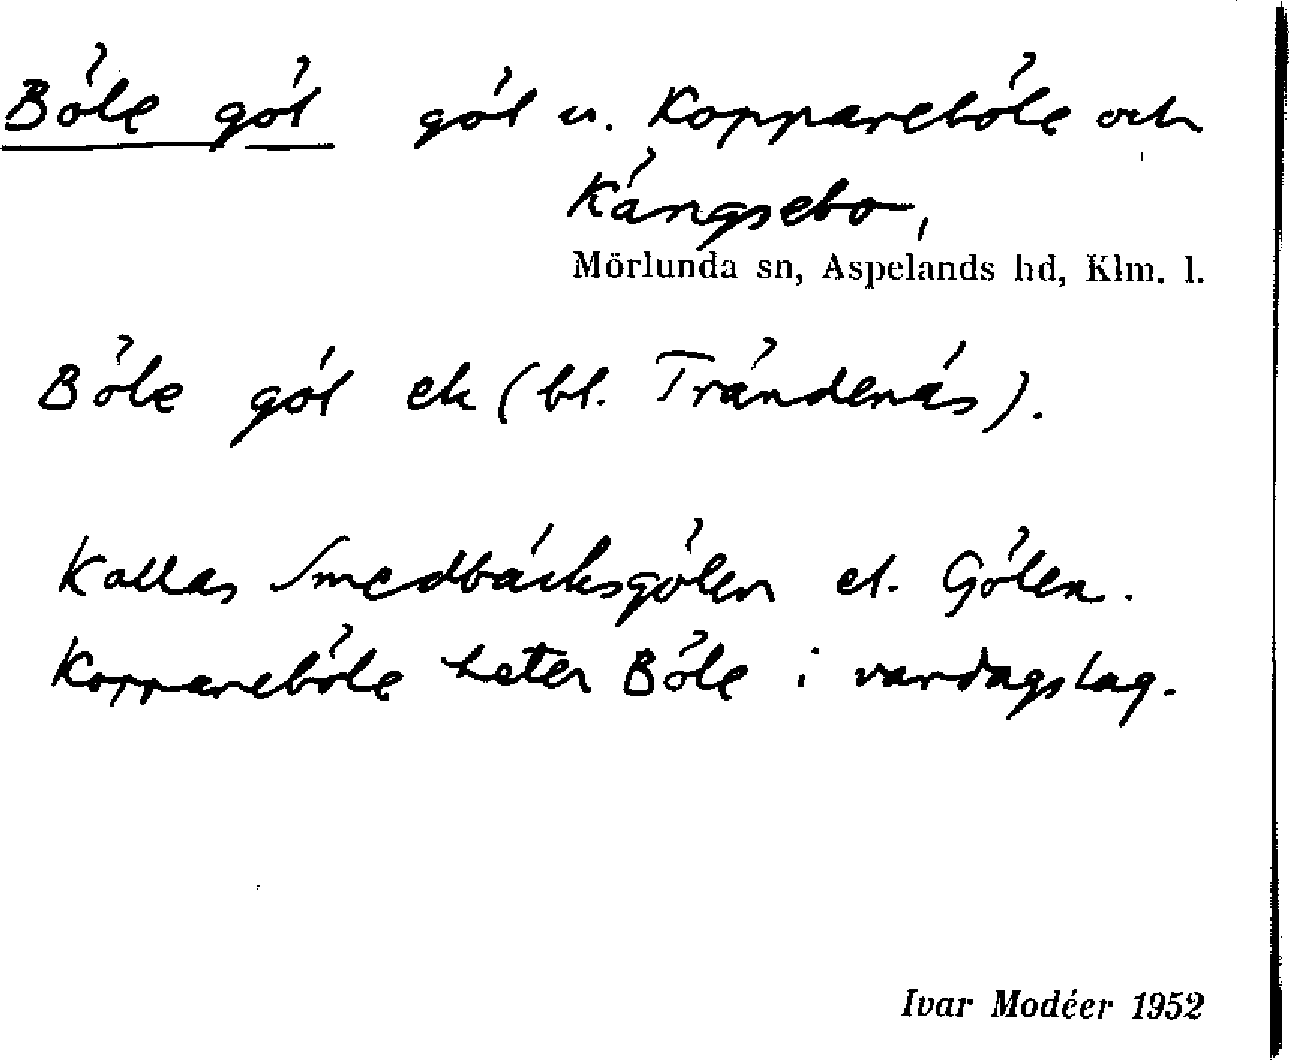 Böle göl göl u. Koppareböle och
Kängsebo,
Mörlunda sn, Aspelands hd, Klm. l.
Böle göl ek (bl. Trändenäs).
Kallas Smedbäcksgölen el. Gölen.
Koppareböle heter Böle i vardagslag.
Ivar Modéer 1952